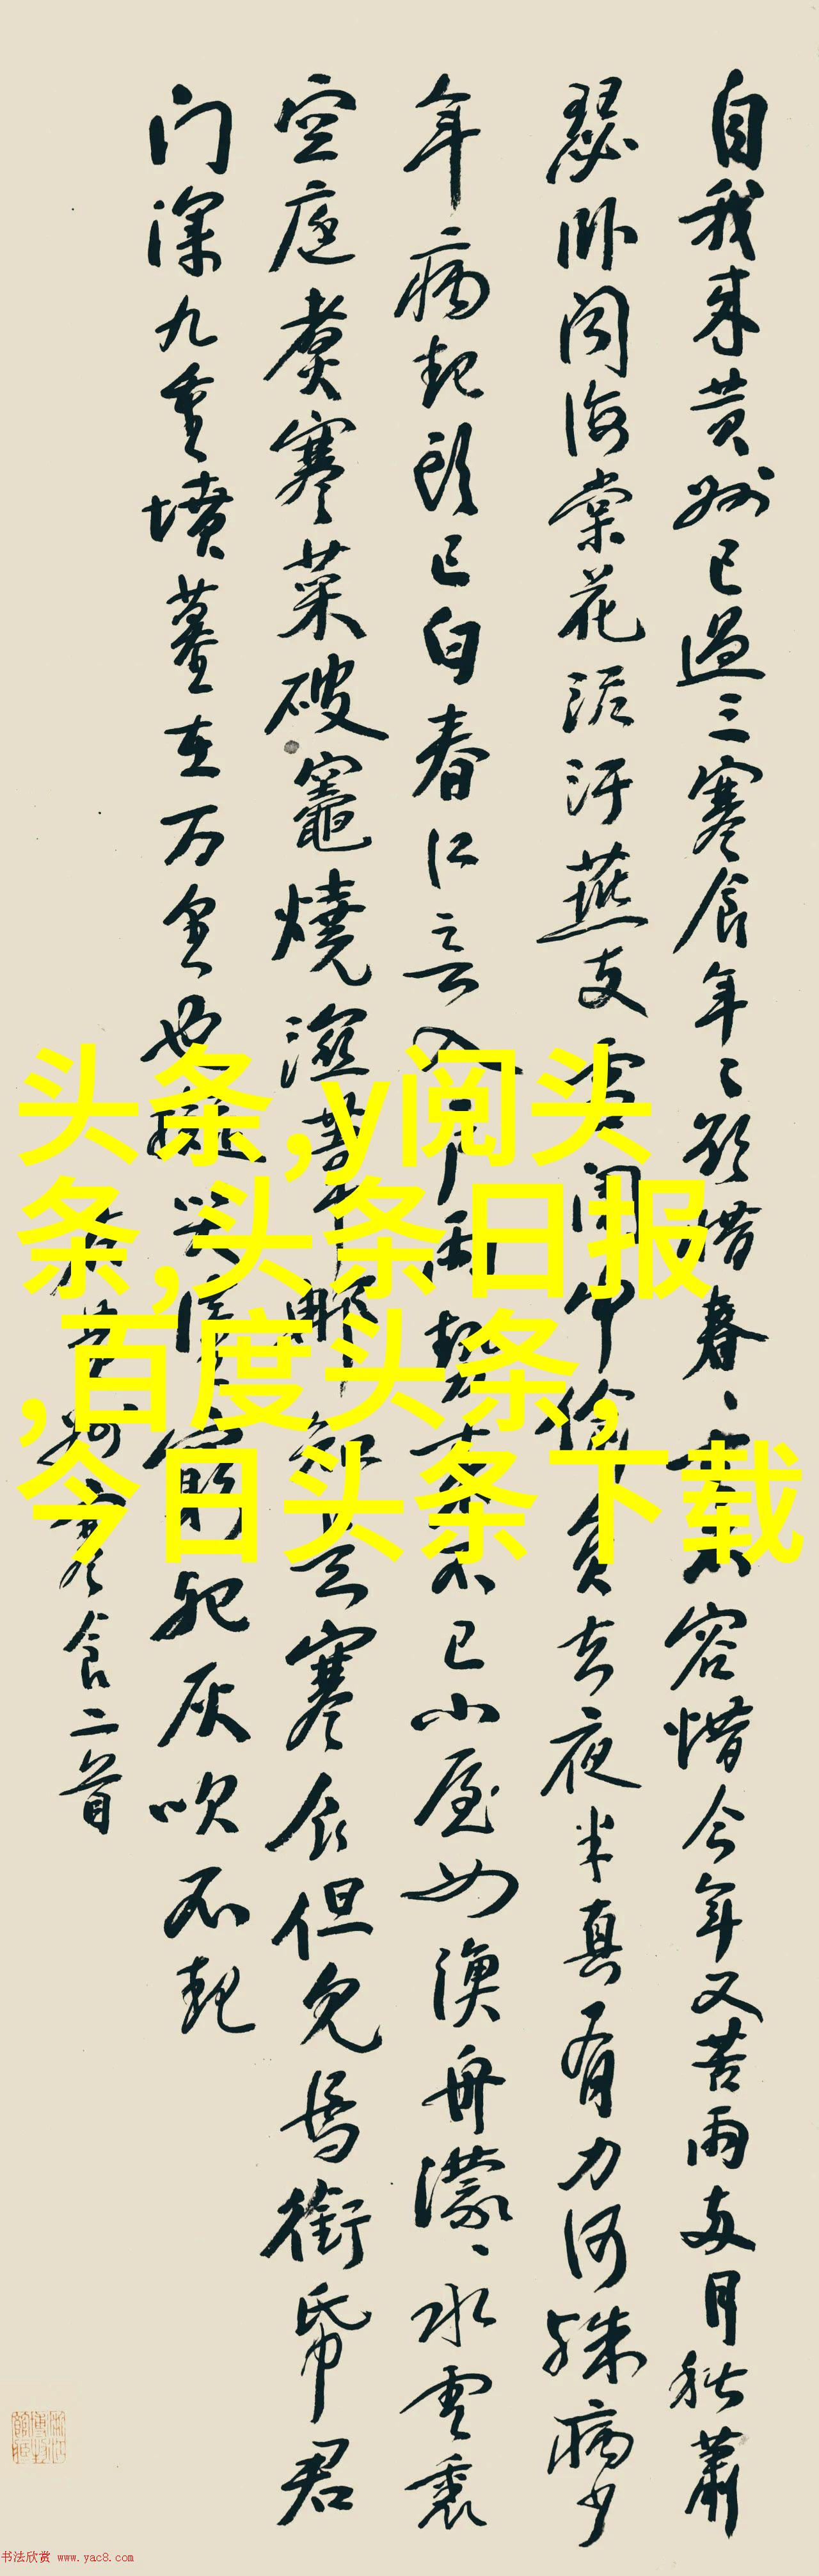 自我来黄州已過三寒食年〻欲惜春〻去不容惜今年又苦雨两月秋蕭
瑟卧闻海棠花泥汙燕支雪闇中偷負去夜半真有力何殊病少
年病起頭已白春江入户雨勢来不已小屋如漁舟濛〻水雲裏
空庖煮寒菜破竈燒濕葦那知是寒食但見烏銜帋君
门深九重墳墓在万里也擬哭塗窮死灰吹不起
右黄州寒食二首
头条,y阅头
条,头条日报
,百度头条,
今日头条下载
书法欣赏 www.yac8.com